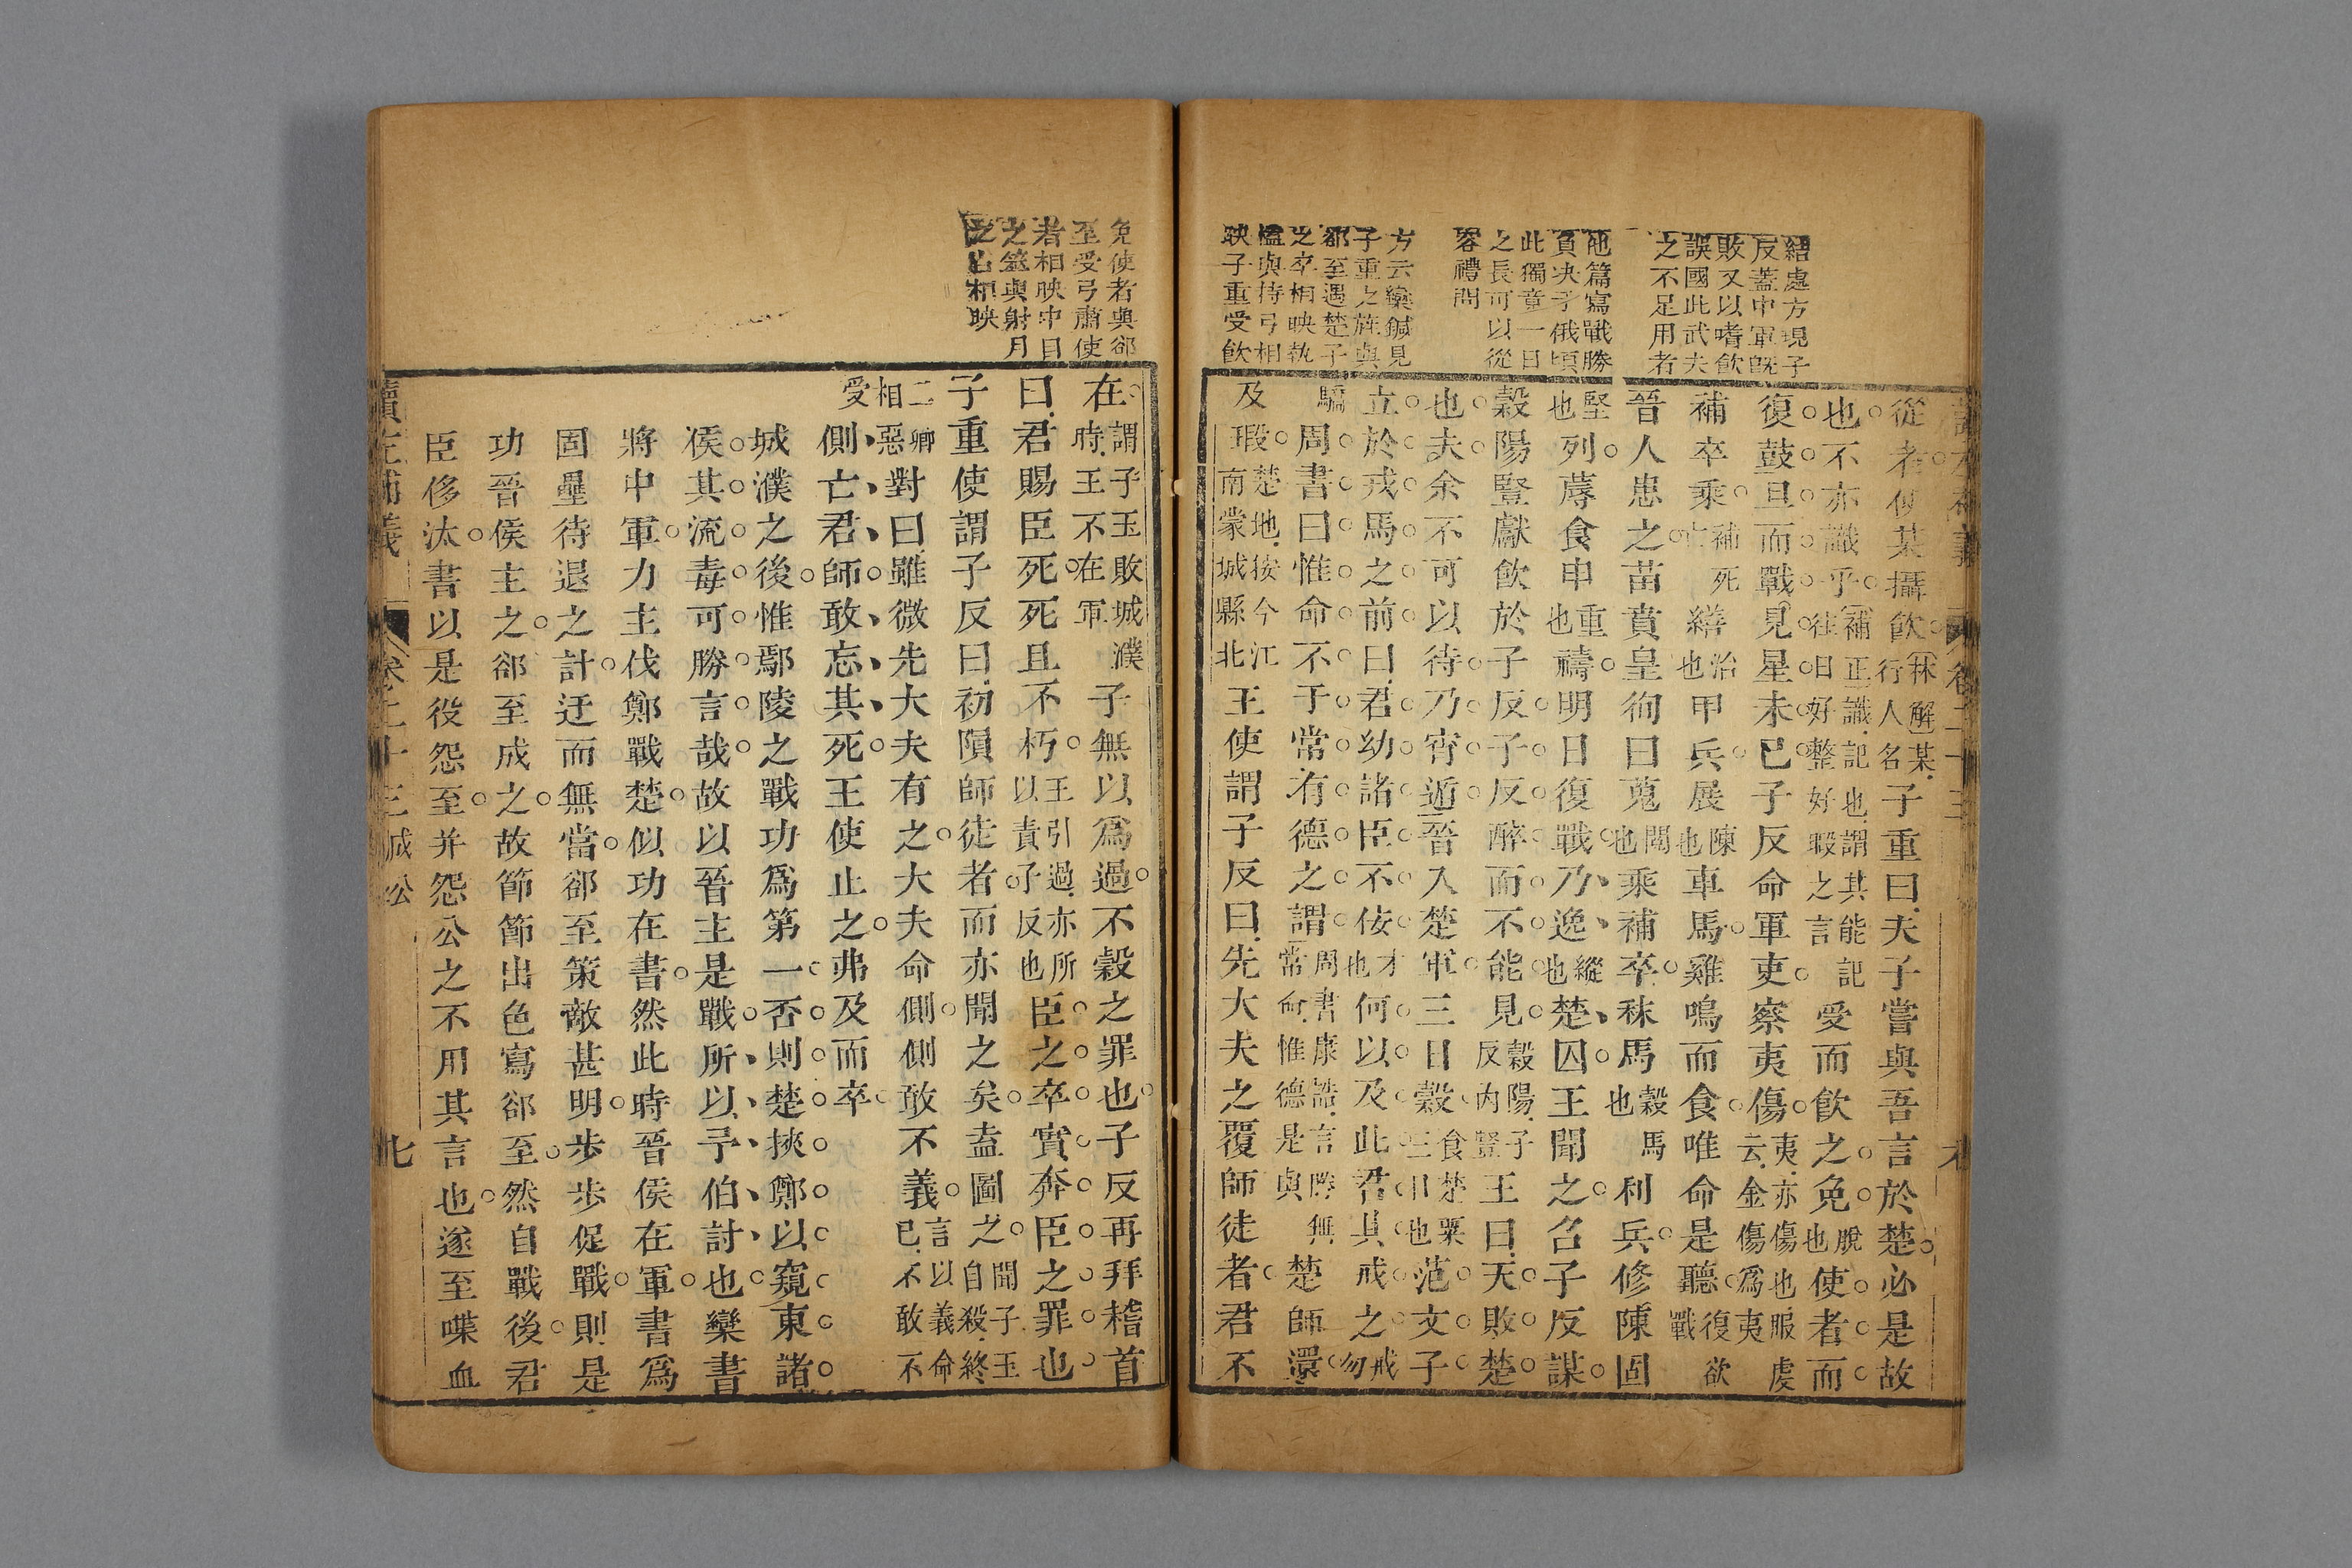 結處方現子
反蓋中軍旣
敗又以嗜飲
誤國此武夫
之不足用者
他篇寫戰勝
負决于俄頃
此獨竟一日
之長可以從
容禮問
方云欒鍼見
子重之旌與
郤至遇楚子
之卒相映執
榼與持弓相
映子重受飲
從者使某攝飲林解某行人名子重曰夫子嘗與吾言於楚必是故
也不亦識乎補正識記也謂其能記往日好整好暇之言受而飲之免脫也使者而
復鼓旦而戰見星未已子反命軍吏察夷傷夷亦傷也服虔云金傷爲夷
補卒乘補死亡繕治也甲兵展陳也車馬雞鳴而食唯命是聽欲復戰
晉人患之苗賁皇徇曰蒐閱也乘補卒秣穀馬也馬利兵修陳固
堅也列蓐食申重也禱明日復戰乃逸縱也楚囚王聞之召子反謀
穀陽豎獻飲於子反子反醉而不能見穀陽子反內豎王曰天敗楚
也夫余不可以待乃宵遁晉入楚軍三日穀食楚粟三日也范文子
立於戎馬之前曰君幼諸臣不佞才也何以及此君其戒之戒勿
驕周書曰惟命不于常有德之謂周書康誥言勝無常命惟德是與楚師還
及瑕楚地按今江南蒙城縣北王使謂子反曰先大夫之覆師徒者君不
讀左補義
卷二十三
免使者與郤
至受弓肅使
者相映中目
之筮與射月
之占相映
在謂子玉敗城濮時王不在軍子無以爲過不穀之罪也子反再拜稽首
曰君賜臣死死且不朽王引過亦所以責子反也臣之卒實奔臣之罪也
子重使謂子反曰初隕師徒者而亦聞之矣盍圖之聞子玉自殺終
二卿相惡對曰雖微先大夫有之大夫命側側敢不義言以義命已不敢不
受側亡君師敢忘其死王使止之弗及而卒
城濮之後惟鄢陵之戰功爲第一否則楚挾鄭以窺東諸
侯其流毒可勝言哉故以晉主是戰所以予伯討也欒書
將中軍力主伐鄭戰楚似功在書然此時晉侯在軍書爲
固壘待退之計迂而無當郤至策敵甚明步步促戰則是
功晉侯主之郤至成之故節節出色寫郤至然自戰後君
臣侈汰書以是役怨至并怨公之不用其言也遂至喋血
讀左補義
卷二十三
成公